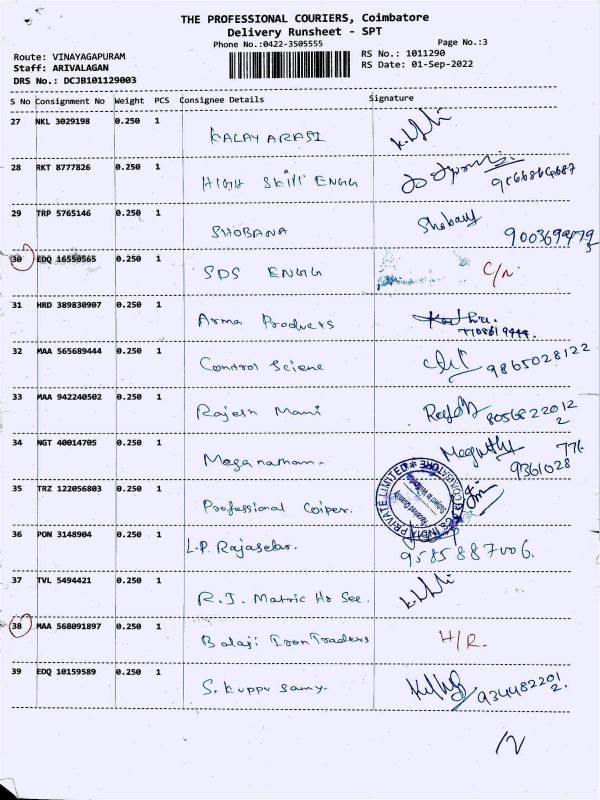 THE PROFESSIONAL COURIERS, Coimbatore
Delivery Runsheet - SPT
Phone No.:0422-3505555
Page No.:3
Route: VINAYAGAPURAM
RS No.: 1011290
Staff: ARIVALAGAN
RS Date: 01-Sep-2022
DRS No.: DCJB101129003
S No Consignment No Weight PCS Consignee Details Signature
27 NKL 3029198 0.250 1 KALAY ARASI
28 RKT 8777826 0.250 1 HIGH Skill ENGG
29 TRP 5765146 0.250 1 SHOBANA Shobana
30 EDQ 16550565 0.250 1 SDS ENGG C/N.
31 HRD 389830907 0.250 1 Arma Products
7708619444.
32 MAA 565689444 0.250 1 Control Sciene 9865028122
33 MAA 942240502 0.250 1 Rajesh Mani 8056822012
34 NGT 40014705 0.250 1 Meganathan.
9361028 771
35 TRZ 122056803 0.250 1 Professional
PRIVATE LIMITED * COIMBATORE
36 PON 3148904 0.250 1 L.P. Rajasekar. 9585887006.
37 TVL 5494421 0.250 1 R.J. Matric Hr See.
38 MAA 568091897 0.250 1 Balaji Iron Traders H/R.
39 EDQ 10159589 0.250 1 S. Kuppu Samy. 9344822012.